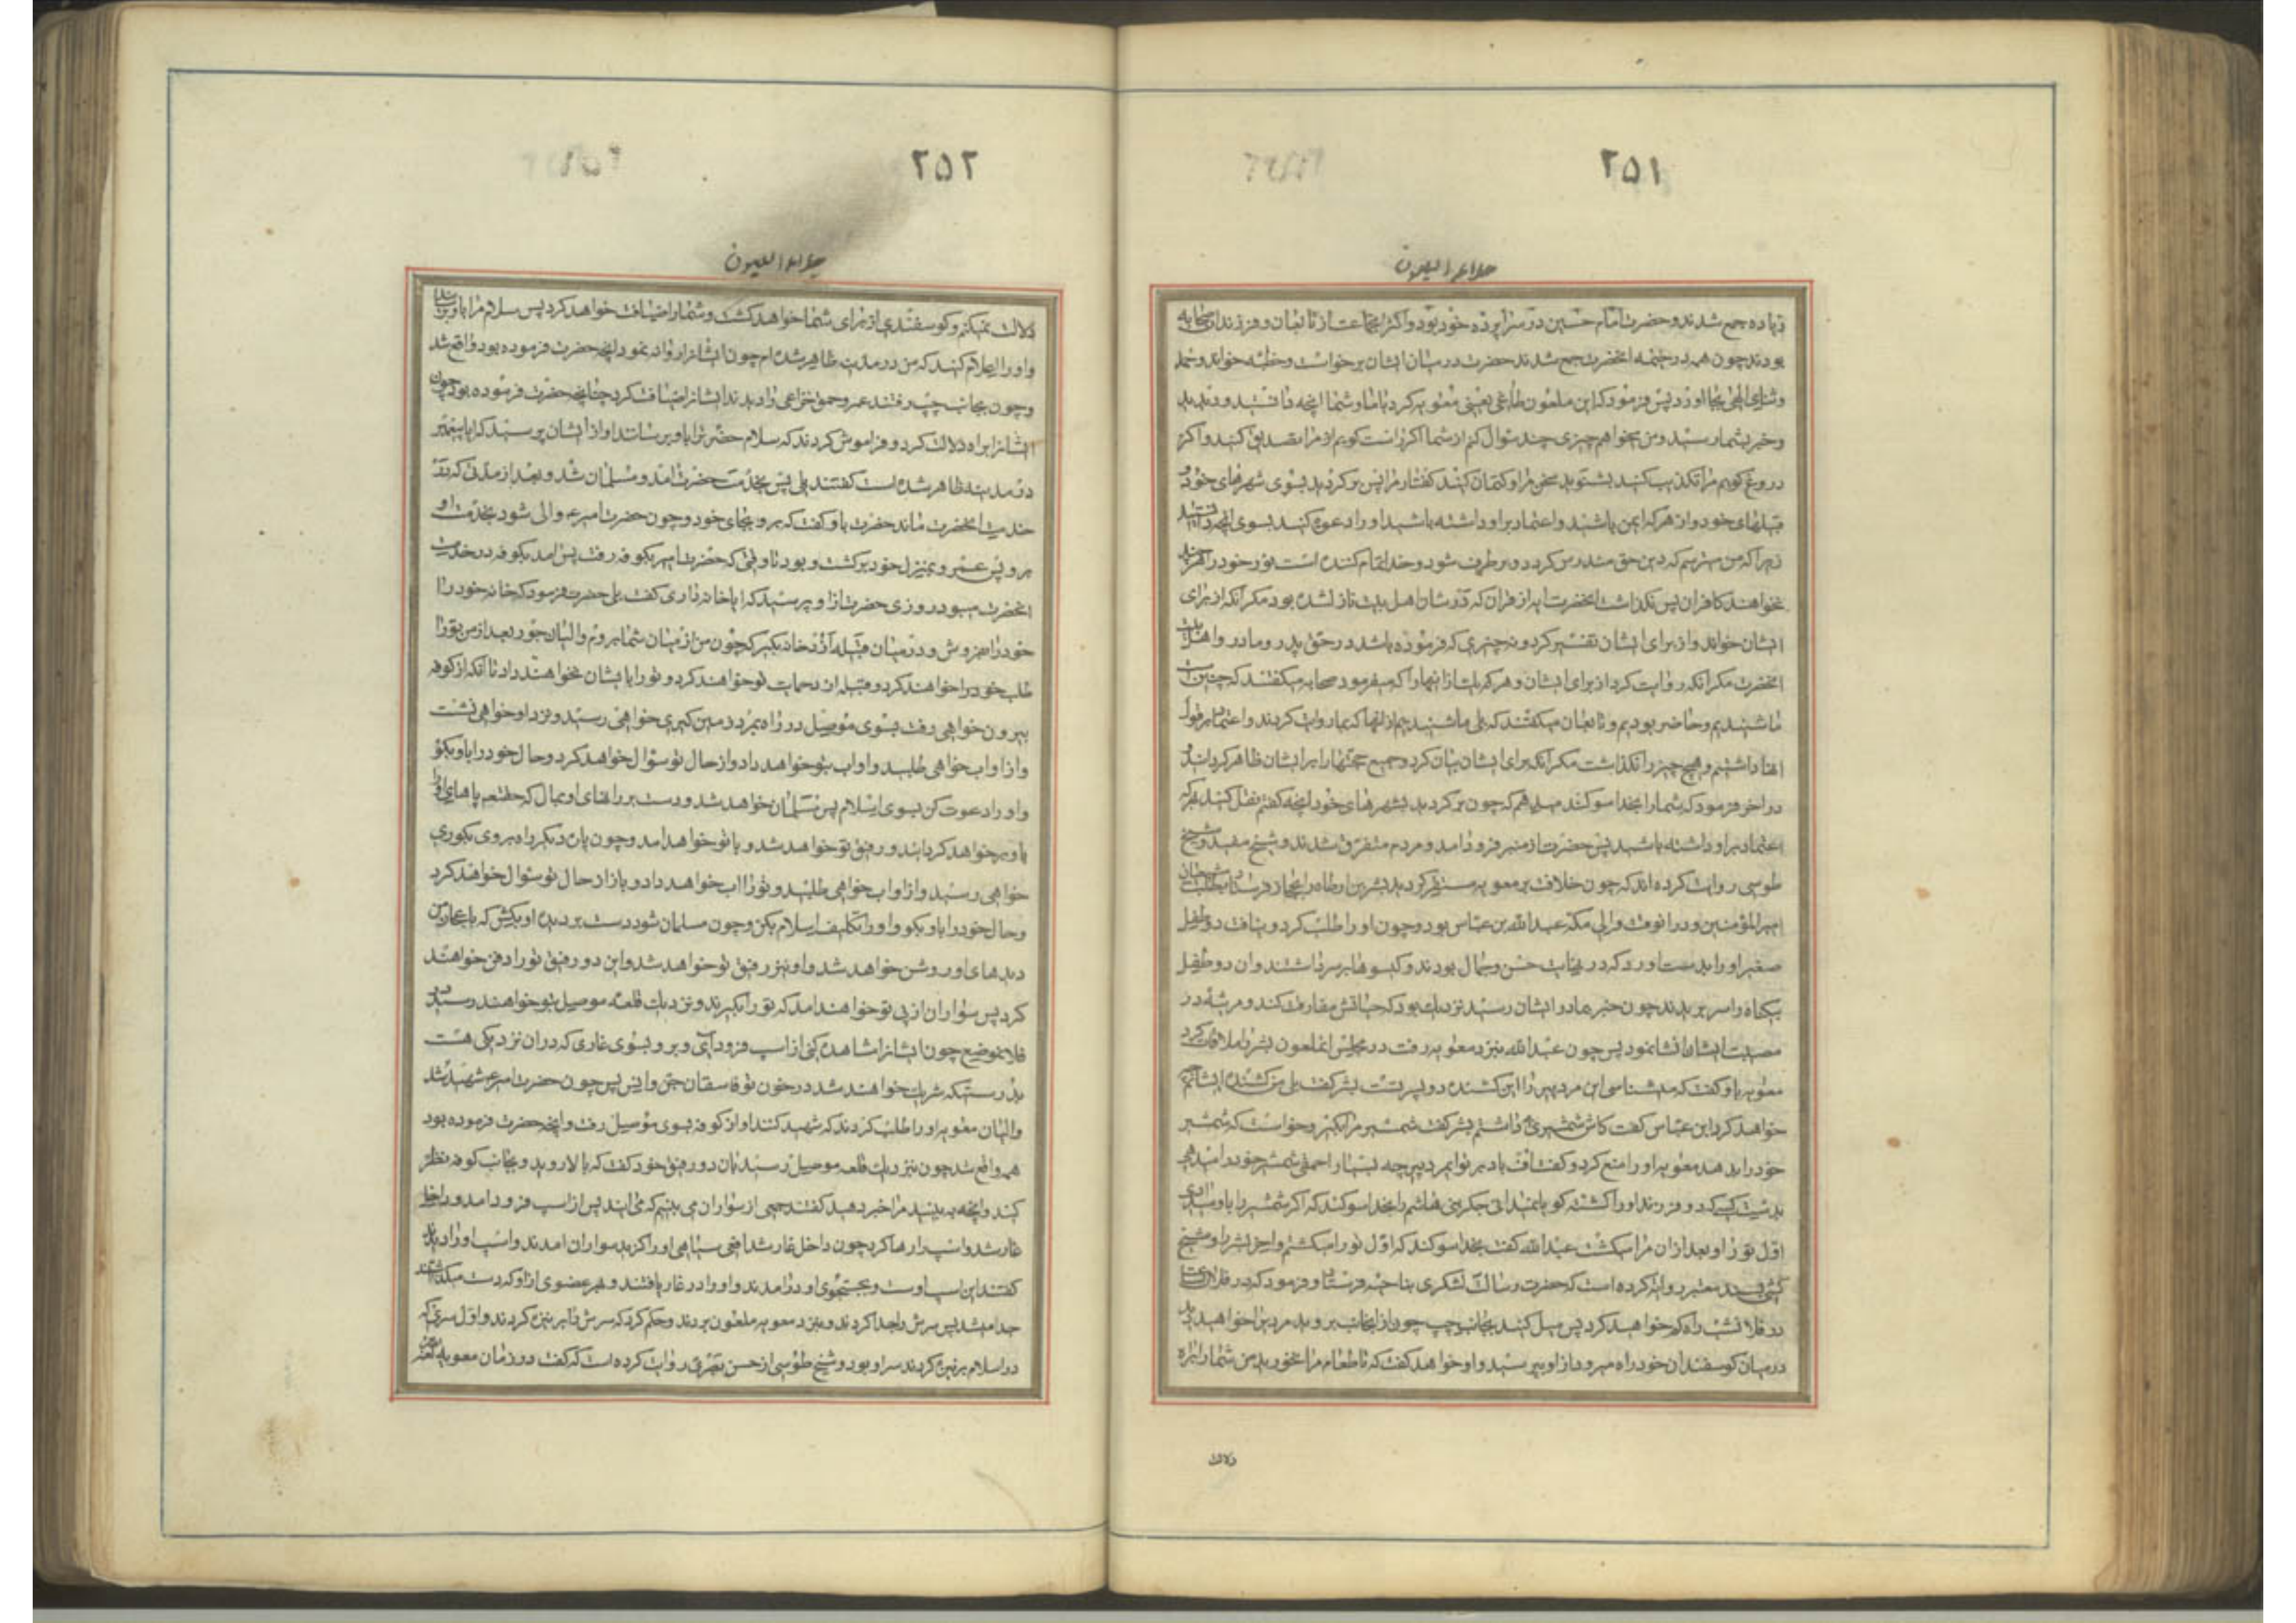 ۲۵۱
جلاء العیون
زیاده جمع شدند و حضرت امام حسین در سراپرده خود بود و اکثر جماعت از تابعان و فرزندان صحابه
بودند چون همه در خیمه آنحضرت جمع شدند حضرت در میان ایشان برخواست و خطبه خواند و حمد
و ثنای الهی بجا آورد پس فرمود که این ملعون طاغی یعنی معویه کرد با ما و شما آنچه دانستید و دیدید
و خبر بشما رسید و من میخواهم چیزی چند سؤال کنم از شما اگر راست گویم از مرا تصدیق کنید و اگر
دروغ گویم مرا تکذیب کنید بشنوید سخن مرا و کتمان کنید گفتار مرا پس برگردید بسوی شهرهای خود و
قبیلهای خود و از هر که ایمن باشید و اعتماد بر او داشته باشید او را دعوت کنید بسوی آنچه دانستید
زیرا که من میترسم که دین حق مندرس گردد و برطرف شود و خدا تمام کننده است نور خود را هر چند
نخواهند کافران پس نگذاشت آنحضرت آیه از قران که در شان اهل بیت نازل شده بود مگر آنکه از برای
ایشان خواند و از برای ایشان تفسیر کرد و نه چیزی که فرموده باشد در حق پدر و مادر و اهل بیت
آنحضرت مگر آنکه روایت کرد از برای ایشان و هر که یک از آنها را که میفرمود صحابه میگفتند که چنین است
ما شنیدیم و حاضر بودیم و تابعان میگفتند که بلی ما شنیدیم از آنها که بما روایت کردند و اعتماد بر قول
آنها داشتیم و هیچ چیز را نگذاشت مگر آنکه برای ایشان بیان کرد و جمیع حجتها را بر ایشان ظاهر گردانید و
در اخر فرمود که شما را بخدا سوگند میدهم که چون برگردید بشهرهای خود آنچه گفتم نقل کنید بهر که
اعتماد بر او داشته باشید پس حضرت از منبر فرود آمد و مردم متفرق شدند و شیخ مفید و شیخ
طوسی روایت کرده اند که چون خلافت بر معویه مستقر گردید بشر بن ارطاه را بحجاز فرستاد بطلب شیعیان
امیر المؤمنین و در آنوقت والی مکه عبد الله بن عباس بود و چون او را طلب کرد و نیافت دو طفل
صغیر او را بدست آورد که در نهایت حسن و جمال بودند و گیسوها بر سر داشتند و آن دو طفل
بیگناه را سر برید چون خبر بمادر ایشان رسید نزدیک بود که جانش مفارقت کند و مرثیه در
مصیبت ایشان انشا نمود پس چون عبد الله بنزد معویه رفت در مجلس آنملعون بشر را ملاقات کرد
معویه باو گفت که میشناسی این مرد پیر را این کشنده دو پسر تست بشر گفت بلی من کشنده ایشانم
خواهد کرد ابن عباس گفت کاش شمشیری میداشتم بشر گفت شمشیر مرا بگیر و خواست که شمشیر
خود را بدهد معویه او را منع کرد و گفت اف باد بر تو ای مرد پیر چه بسیار احمقی شمشیر خود را میدهی
بدست کسی که دو فرزند او را کشته گویا نمیدانی جگر بنی هاشم را بخدا سوگند که اگر شمشیر را باو میدادی
اول تو را و بعد از ان مرا میکشت عبد الله گفت بخدا سوگند که اول تو را میکشتم و آخر بشر را و شیخ
کشی بسند معتبر روایت کرده است که حضرت رسالت لشکری بناحیه فرستاد و فرمود که در فلان ساعت
در فلان شب راه گم خواهید کرد پس میل کنید بجانب چپ چون از آنجانب بروید مردیرا خواهید دید
در میان گوسفندان خود راه میرود از او بپرسید و او خواهد گفت که تا طعام مرا نخورید من شما را براه
دلالت
۲۵۲
جلاء العیون
دلالت نمیکنم و گوسفندی از برای شما خواهد کشت و شما را ضیافت خواهد کرد پس سلام مرا باو برسانید
و او را اعلام کنید که من در مدینه ظاهر شده ام چون ایشان را روانه نمود آنچه حضرت فرموده بود واقع شد
و چون بجانب چپ رفتند عمرو حمق خزاعی را دیدند ایشان را ضیافت کرد چنانچه حضرت فرموده بود چون
ایشان را براه دلالت کرد و فراموش کردند که سلام حضرت را باو برسانند او از ایشان پرسید که ایا پیغمبر
در مدینه ظاهر شده است گفتند بلی پس بخدمت حضرت آمد و مسلمان شد و بعد از مدتی که در
خدمت آنحضرت ماند حضرت باو گفت که برو بجای خود و چون حضرت امیر والی شود بخدمت او
برو پس عمرو بمنزل خود برگشت و بود تا وقتی که حضرت امیر بکوفه رفت پس آمد بکوفه در خدمت
آنحضرت میبود روزی حضرت از او پرسید که ایا خانه داری گفت بلی حضرت فرمود که خانه خود را
خود را بفروش و در میان قبیله ازد خانه بگیر که چون من از میان شما بروم والیان جور بعد از من تو را
طلب خود را خواهند کرد و قبیله ازد حمایت تو خواهند کرد و تو را بایشان نخواهند داد تا آنکه از کوفه
بیرون خواهی رفت بسوی موصل در راه بمرد زمین گیری خواهی رسید و نزد او خواهی نشست
و از او آب خواهی طلبید و او آب بتو خواهد داد و از حال تو سؤال خواهد کرد و حال خود را باو بگو
و او را دعوت کن بسوی اسلام پس مسلمان خواهد شد و دست بر رانهای او بمال که حقتعالی پاهای او را
باو برخواهد گردانید و رفیق تو خواهد شد و با تو خواهد آمد و چون پاره دیگر راه بروی بکوری
خواهی رسید و از او آب خواهی طلبید و تو را آب خواهد داد و باز از حال تو سؤال خواهد کرد
و حال خود را باو بگو و او را تکلیف اسلام بکن و چون مسلمان شود دست بر دیده او بکش که باعجاز من
دیدهای او روشن خواهد شد و او نیز رفیق تو خواهد شد و این دو رفیق تو را دفن خواهند
کرد پس سواران از پی تو خواهند آمد که تو را بگیرند و نزدیک قلعه موصل بتو خواهند رسید در
فلان موضع چون ایشان را مشاهده کنی از اسب فرود آی و برو بسوی غاری که در ان نزدیکی هست
بدرستیکه شریک خواهند شد در خون تو فاسقان جن و انس پس چون حضرت امیر شهید شد
والیان معویه او را طلب کردند که شهید کنند او از کوفه بسوی موصل رفت و آنچه حضرت فرموده بود
همه واقع شد چون بنزدیک قلعه موصل رسید بان دو رفیق خود گفت که بالا روید و بجانب کوفه نظر
کنید و آنچه به بینید مرا خبر دهید گفتند جمعی از سواران می بینیم که می ایند پس از اسب فرود آمد و داخل
غار شد و اسب را رها کرد چون داخل غار شد افعی سیاهی او را گزید سواران آمدند و اسب او را دیدند
گفتند این اسب اوست و بجستجوی او در آمدند و او را در غار یافتند و هر عضوی از او که دست میگذاشتند
جدا میشد پس سرش را جدا کردند و بنزد معویه ملعون بردند و حکم کرد که سرش را بر نیزه کردند و اول سری که
در اسلام بر نیزه کردند سر او بود و شیخ طوسی از حسن بصری روایت کرده است که گفت در زمان معویه